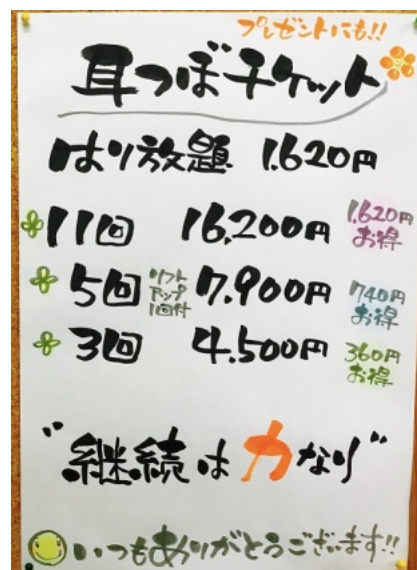 プレゼントにも!!
耳つぼチケット
はり放題 1.620円
11回 16.200円 1.620円お得
5回 リフトアップ1回付 7.900円 740円お得
3回 4.500円 360円お得
"継続は力なり"
いつもありがとうございます!!